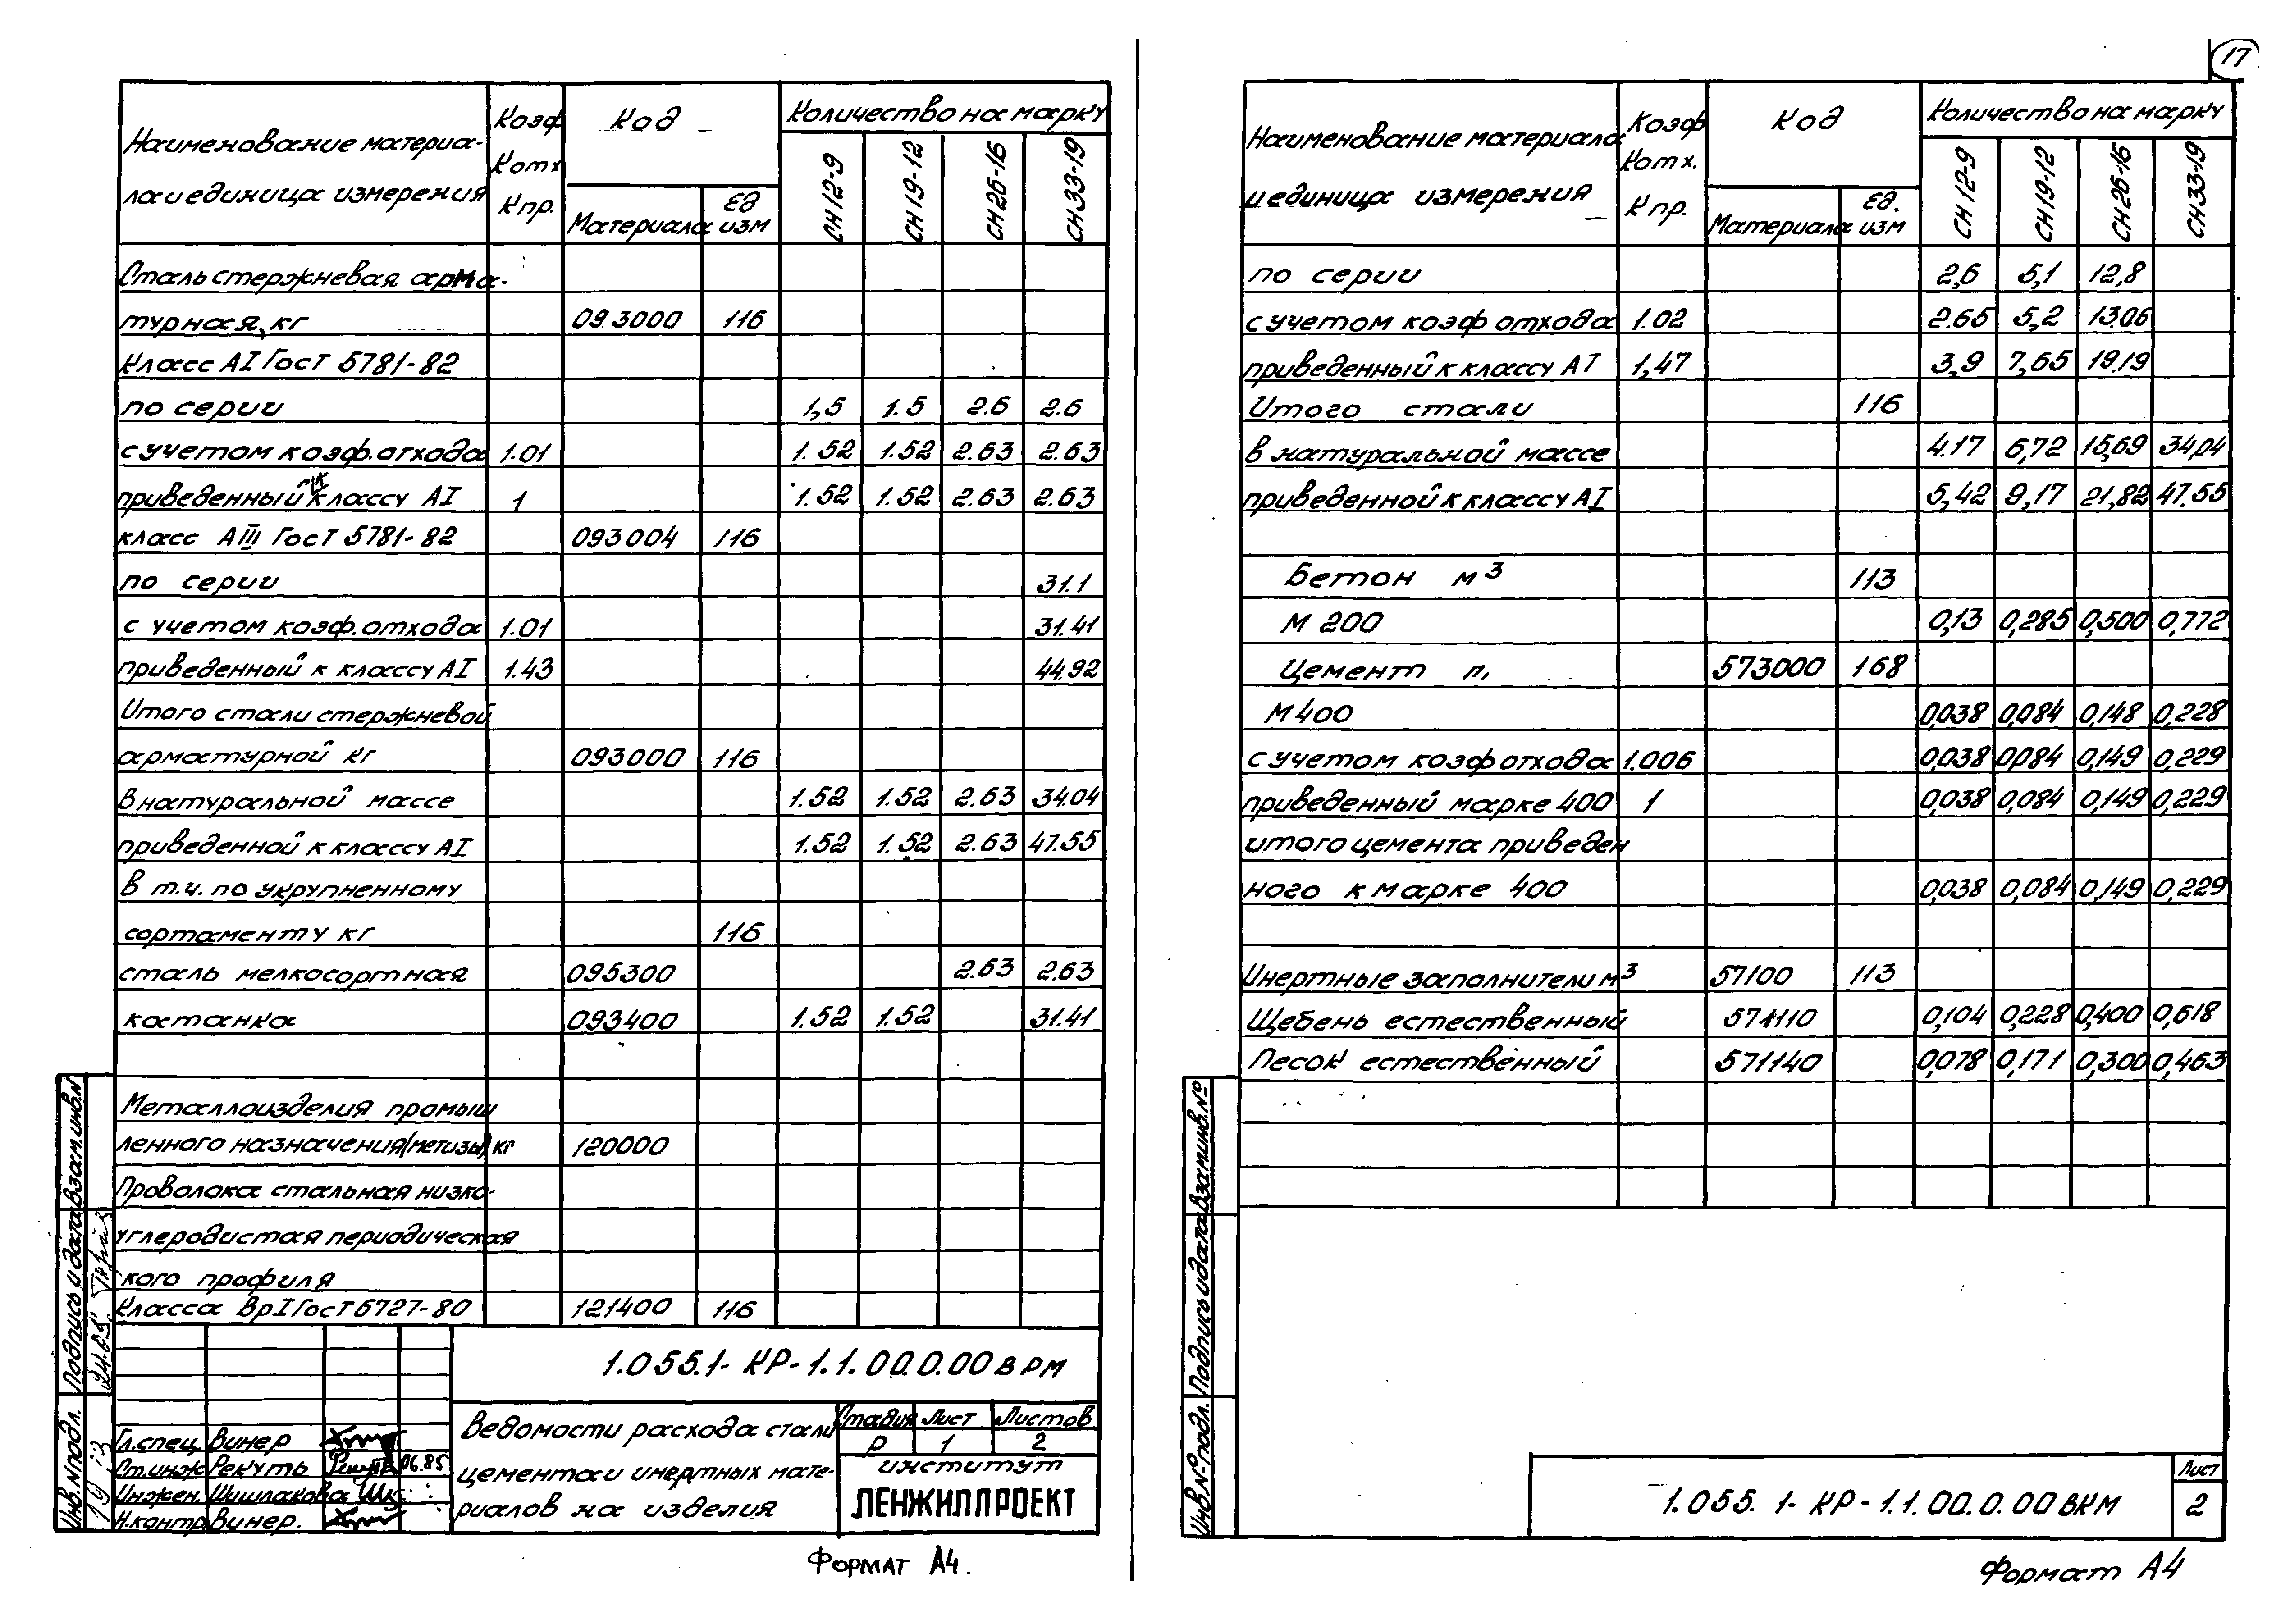 17
Наименование материа-
ла и единица измерения
Коэф
Котх
Кпр.
Код
Материала
Ед
изм
Количество на марку
СН12-9 СН19-12 СН26-16 СН33-19
Сталь стержневая арма-
турная, кг 093000 116
Класс АI Гост 5781-82
по серии 1,5 1.5 2.6 2.6
с учетом коэф. отхода 1.01 1.52 1.52 2.63 2.63
приведенный к классу АI 1 1.52 1.52 2.63 2.63
класс АIII Гост 5781-82 093004 116
по серии 31.1
с учетом коэф. отхода 1.01 31.41
приведенный к классу АI 1.43 44.92
Итого стали стержневой
арматурной кг 093000 116
в натуральной массе 1.52 1.52 2.63 34.04
приведенной к классу АI 1.52 1.52 2.63 47.55
в т.ч. по укрупненному
сортаменту кг 116
сталь мелкосортная 095300 2.63 2.63
катанка 093400 1.52 1.52 31.41
Металлоизделия промыш
ленного назначения (метизы) кг 120000
Проволока стальная низко-
углеродистая периодическая
кого профиля
Класса ВрI Гост 6727-80 121400 116
1.055.1-КР-1.1.00.0.00 ВРМ
Ведомости расхода стали
цемента и инертных мате-
риалов на изделия
Стадия Лист Листов
Р 1 2
институт
ЛЕНЖИЛПРОЕКТ
Гл.спец. Винер
Ст.инж Рекуть 06.85
Инжен. Шишлакова
Н.контр Винер.
Инв.N подл. Подпись и дата Взам.инв.N
Формат А4.
Наименование материала
и единица измерения
Коэф
Котх.
Кпр.
Код
Материала
Ед.
изм
Количество на марку
СН12-9 СН19-12 СН26-16 СН33-19
по серии 2,6 5,1 12,8
с учетом коэф отхода 1.02 2.65 5,2 13.06
приведенный к классу АI 1,47 3,9 7,65 19.19
Итого стали 116
в натуральной массе 4.17 6,72 15,69 34,04
приведенной к классу АI 5,42 9,17 21,82 47.55
Бетон м³ 113
М 200 0,13 0,285 0,500 0,772
Цемент п. 573000 168
М400 0,038 0,084 0,148 0,228
с учетом коэф отхода 1.006 0,038 0,084 0,149 0,229
приведенный марке 400 1 0,038 0,084 0,149 0,229
итого цемента приведен
ного к марке 400 0,038 0,084 0,149 0,229
Инертные заполнители м³ 57100 113
Щебень естественный 571110 0,104 0,228 0,400 0,618
Песок естественный 571140 0,078 0,171 0,300 0,463
1.055.1-КР-1.1.00.0.00 ВКМ
Лист
2
Инв.№ подл. Подпись и дата Взам инв.№
Формат А4